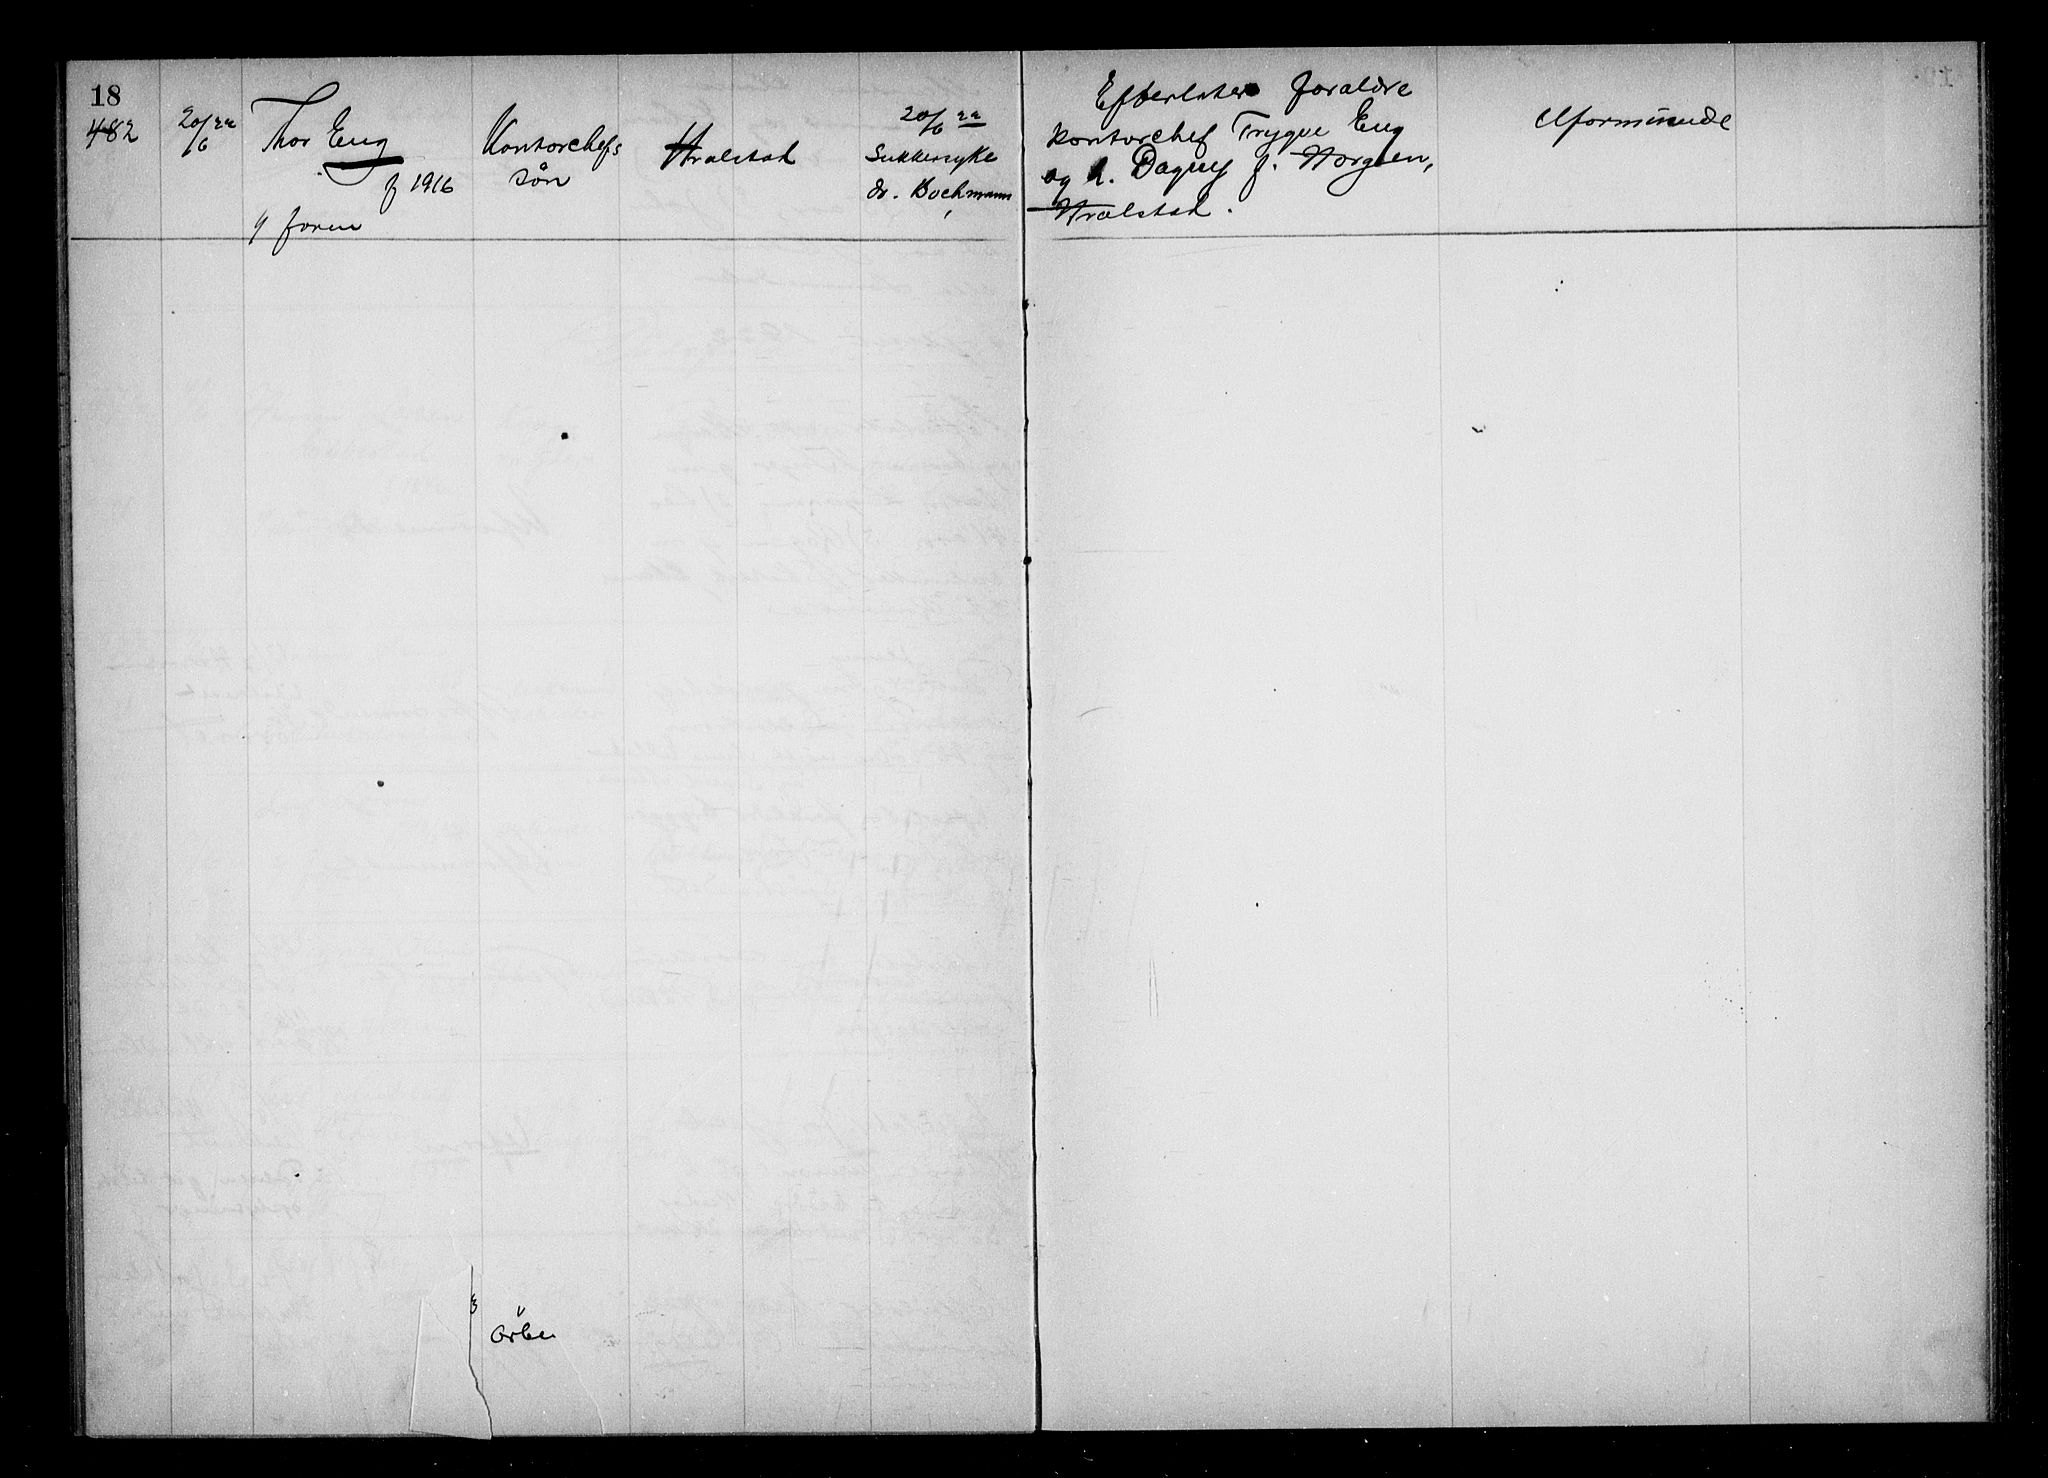 18
482
20/6 22
Thor Eng
f 1916
ɥ foren
Kontorchefs
sön
Hvalstad
20/6 22
Sukkersyke
dr. Bochmann
Efterlater foraldre
kontorchef Trygve Eng
og h. Dagny f. Horgen,
Hvalstad.
Uformuende